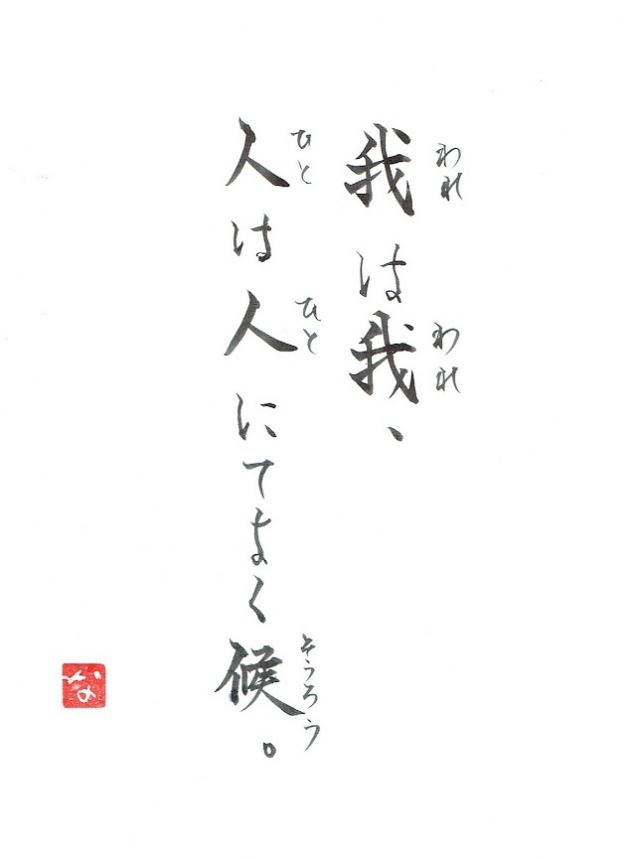 我は我、
われ
われ
人は人にてよく候。
ひと
ひと
そうろう
な